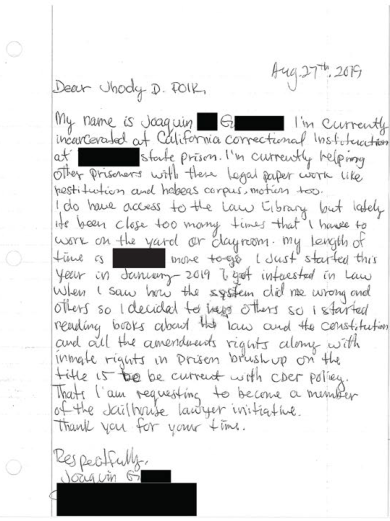 Aug. 27th, 2019
Dear Jhody D. POIK,
My name is Joaquin G I'm currently
incarcerated at California correctional Institucation
at state prison. I'm currently helping
other prisoners with there legal paper work like
restitution and habeas corpus, motion too.
I do have access to the Law Library but lately
its been close too many times that I have to
work on the yard or dayroom. My length of
time is more to go I Just started this
year in January 2019 I got interested in Law
when I saw how the system did me wrong and
others so I decided to others so I started
reading books about the law and the constitution
and all the amendments rights along with
inmate rights in Prison brush up on the
title 15 to be current with CDCR policy.
Thats I am requesting to become a member
of the Jailhouse lawyer initiative.
Thank you for your time.
Respectfully,
Joaquin G